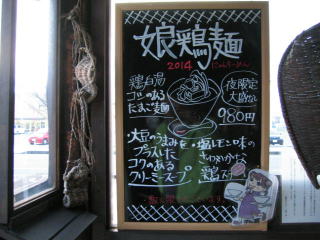 娘鶏麺
2014 にゃんちーめん
鶏白湯
コシのある
たまご麺
夜限定
大盛なし
980円
大豆のうまみを
プラスした
コクのある
クリーミースープ
塩レモン味の
さわやかな
鶏スープ